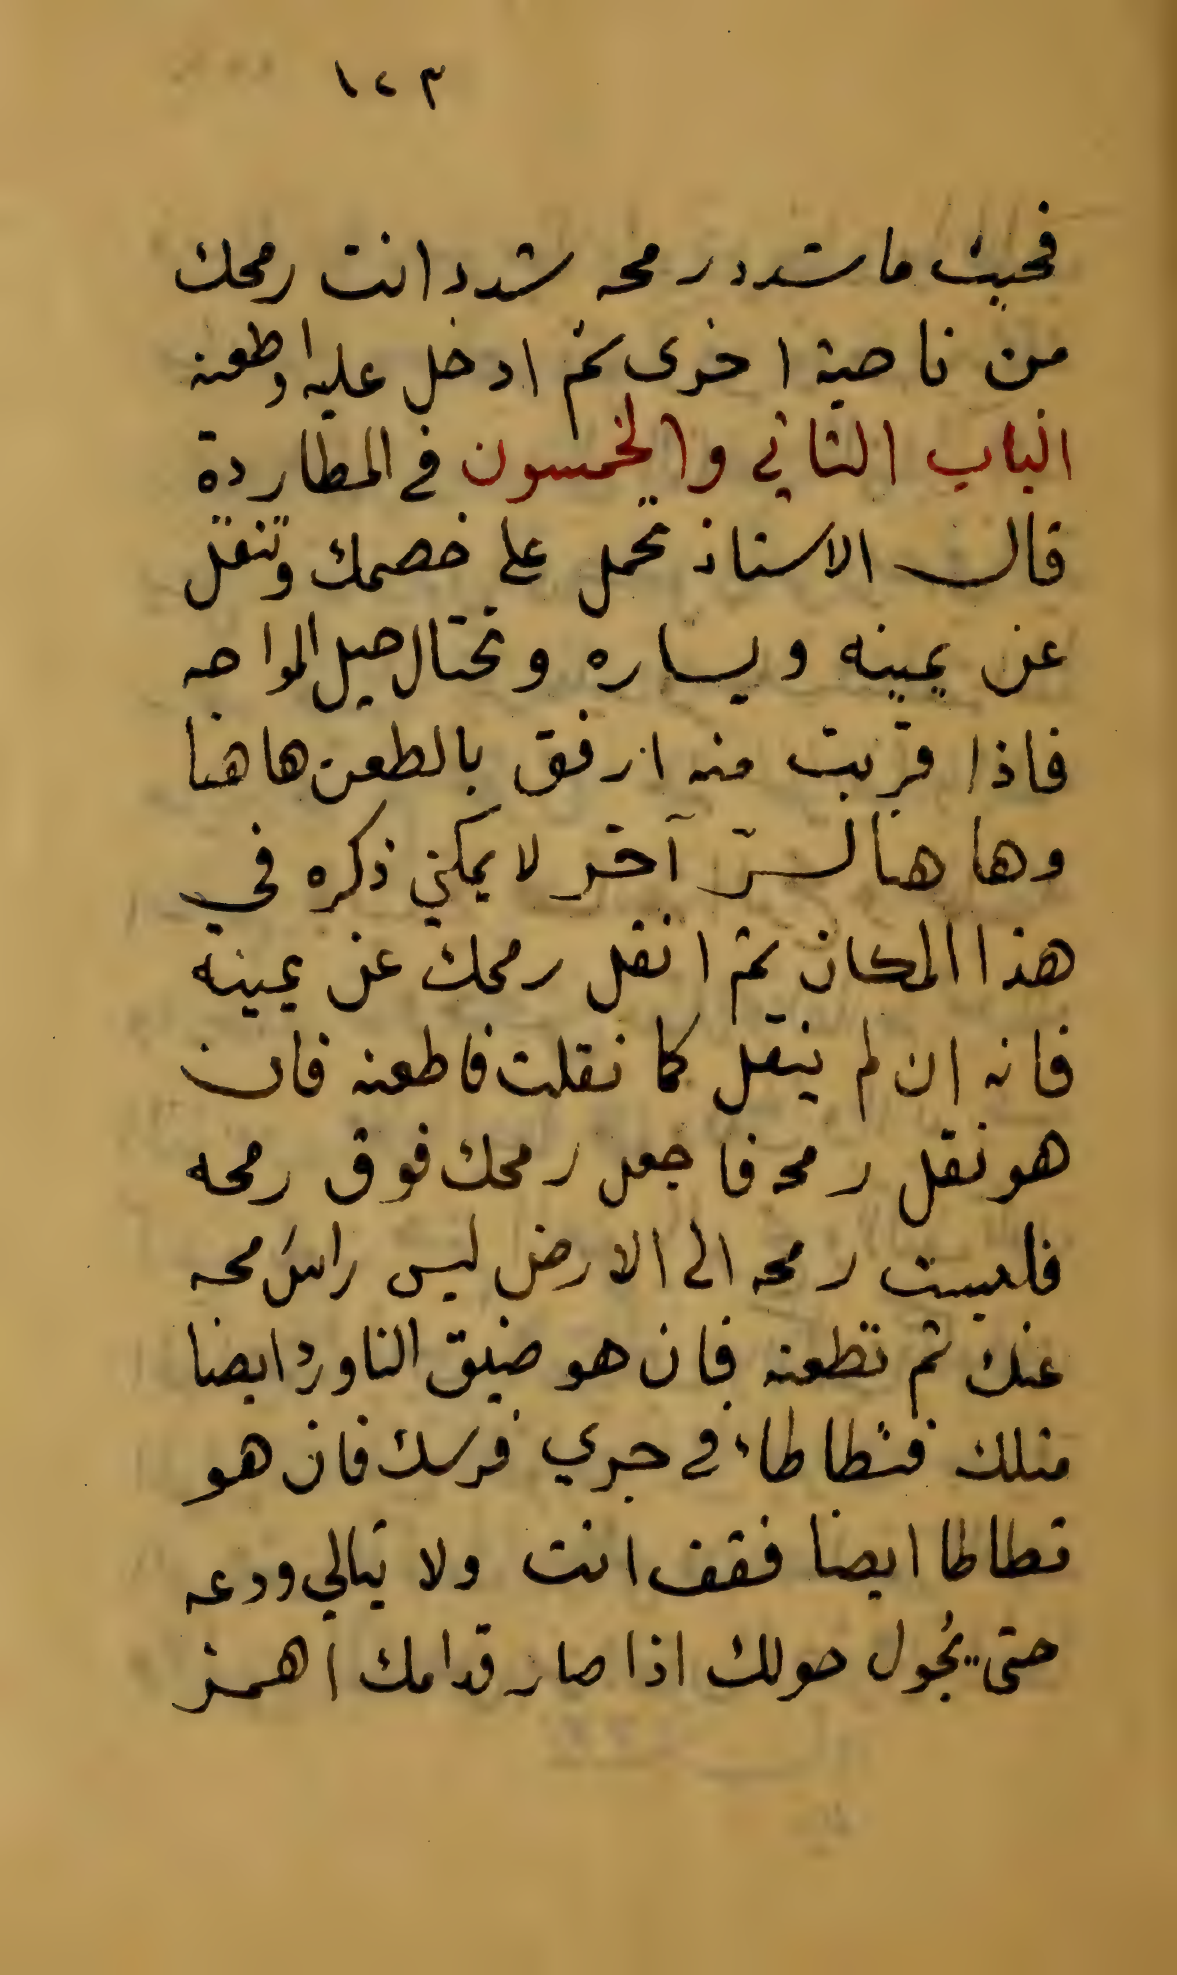 ١٤٣
فحيث ما سدد رمحه شدد انت رمحك
من ناحية اخرى ثم ادخل عليه اوطعنه
الباب الثاني والخمسون في المطاردة
قال الاستاذ تحمل على خصمك وتنقل
عن يمينه ويساره وتحتال حيل المواجه
فاذا قربت منه ارفق بالطعن هاهنا
وهاهنا لسرّ آخر لا يمكني ذكره في
هذا المكان ثم انقل رمحك عن يمينه
فانه ان لم ينقل كما نقلت فاطعنه فان
هو نقل رمحه فاجعل رمحك فوق رمحه
رمحه الى الارض ليس راس محه
عنك ثم تطعنه فان هو ضيق الناورد ايضا
مثلك فتطاطاء في جري فرسك فان هو
تطاطا ايضا فقف انت ولا تبالي ودعه
حتى يجُول حولك اذا صار قدامك اهمز